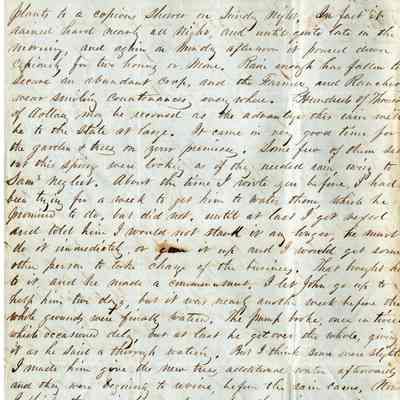 plants to a copious shower on Sunday night. In fact it
rained hard nearly all night, and until quite late in the
morning, and again on Monday afternoon it poured down
copiously for two hours or more. Rain enough has fallen to
secure an abundant crop, and the Farmers and Ranchers
wear smiling countenances every where. Hundreds of thousands
of dollars may be reconed as the advantage this rain will
be to the state at large. It came in very good time for
the garden & trees on your premises. Some few of them set
out this spring were looking as if they needed rain, owing to
Sam's neglect. About the time I wrote you before, I had
been trying for a week to get him to water them, which he
promised to do, but did not, until at last I got vexed
and told him I would not stand it any longer, he must
do it immediately or give it up and I would get some
other person to take charge of the business. That brought him
to it, and he made a commencement, I let John go up to
help him two days, but it was nearly another week before the
whole grounds were finally watered. The pump broke, once or twice
which occasioned delay, but at last he got over the whole, giving
it as he said a through watering. But I think some were slighted
I made him give the new trees, additional water afterwards
and they were beginning to revive before the rain came.